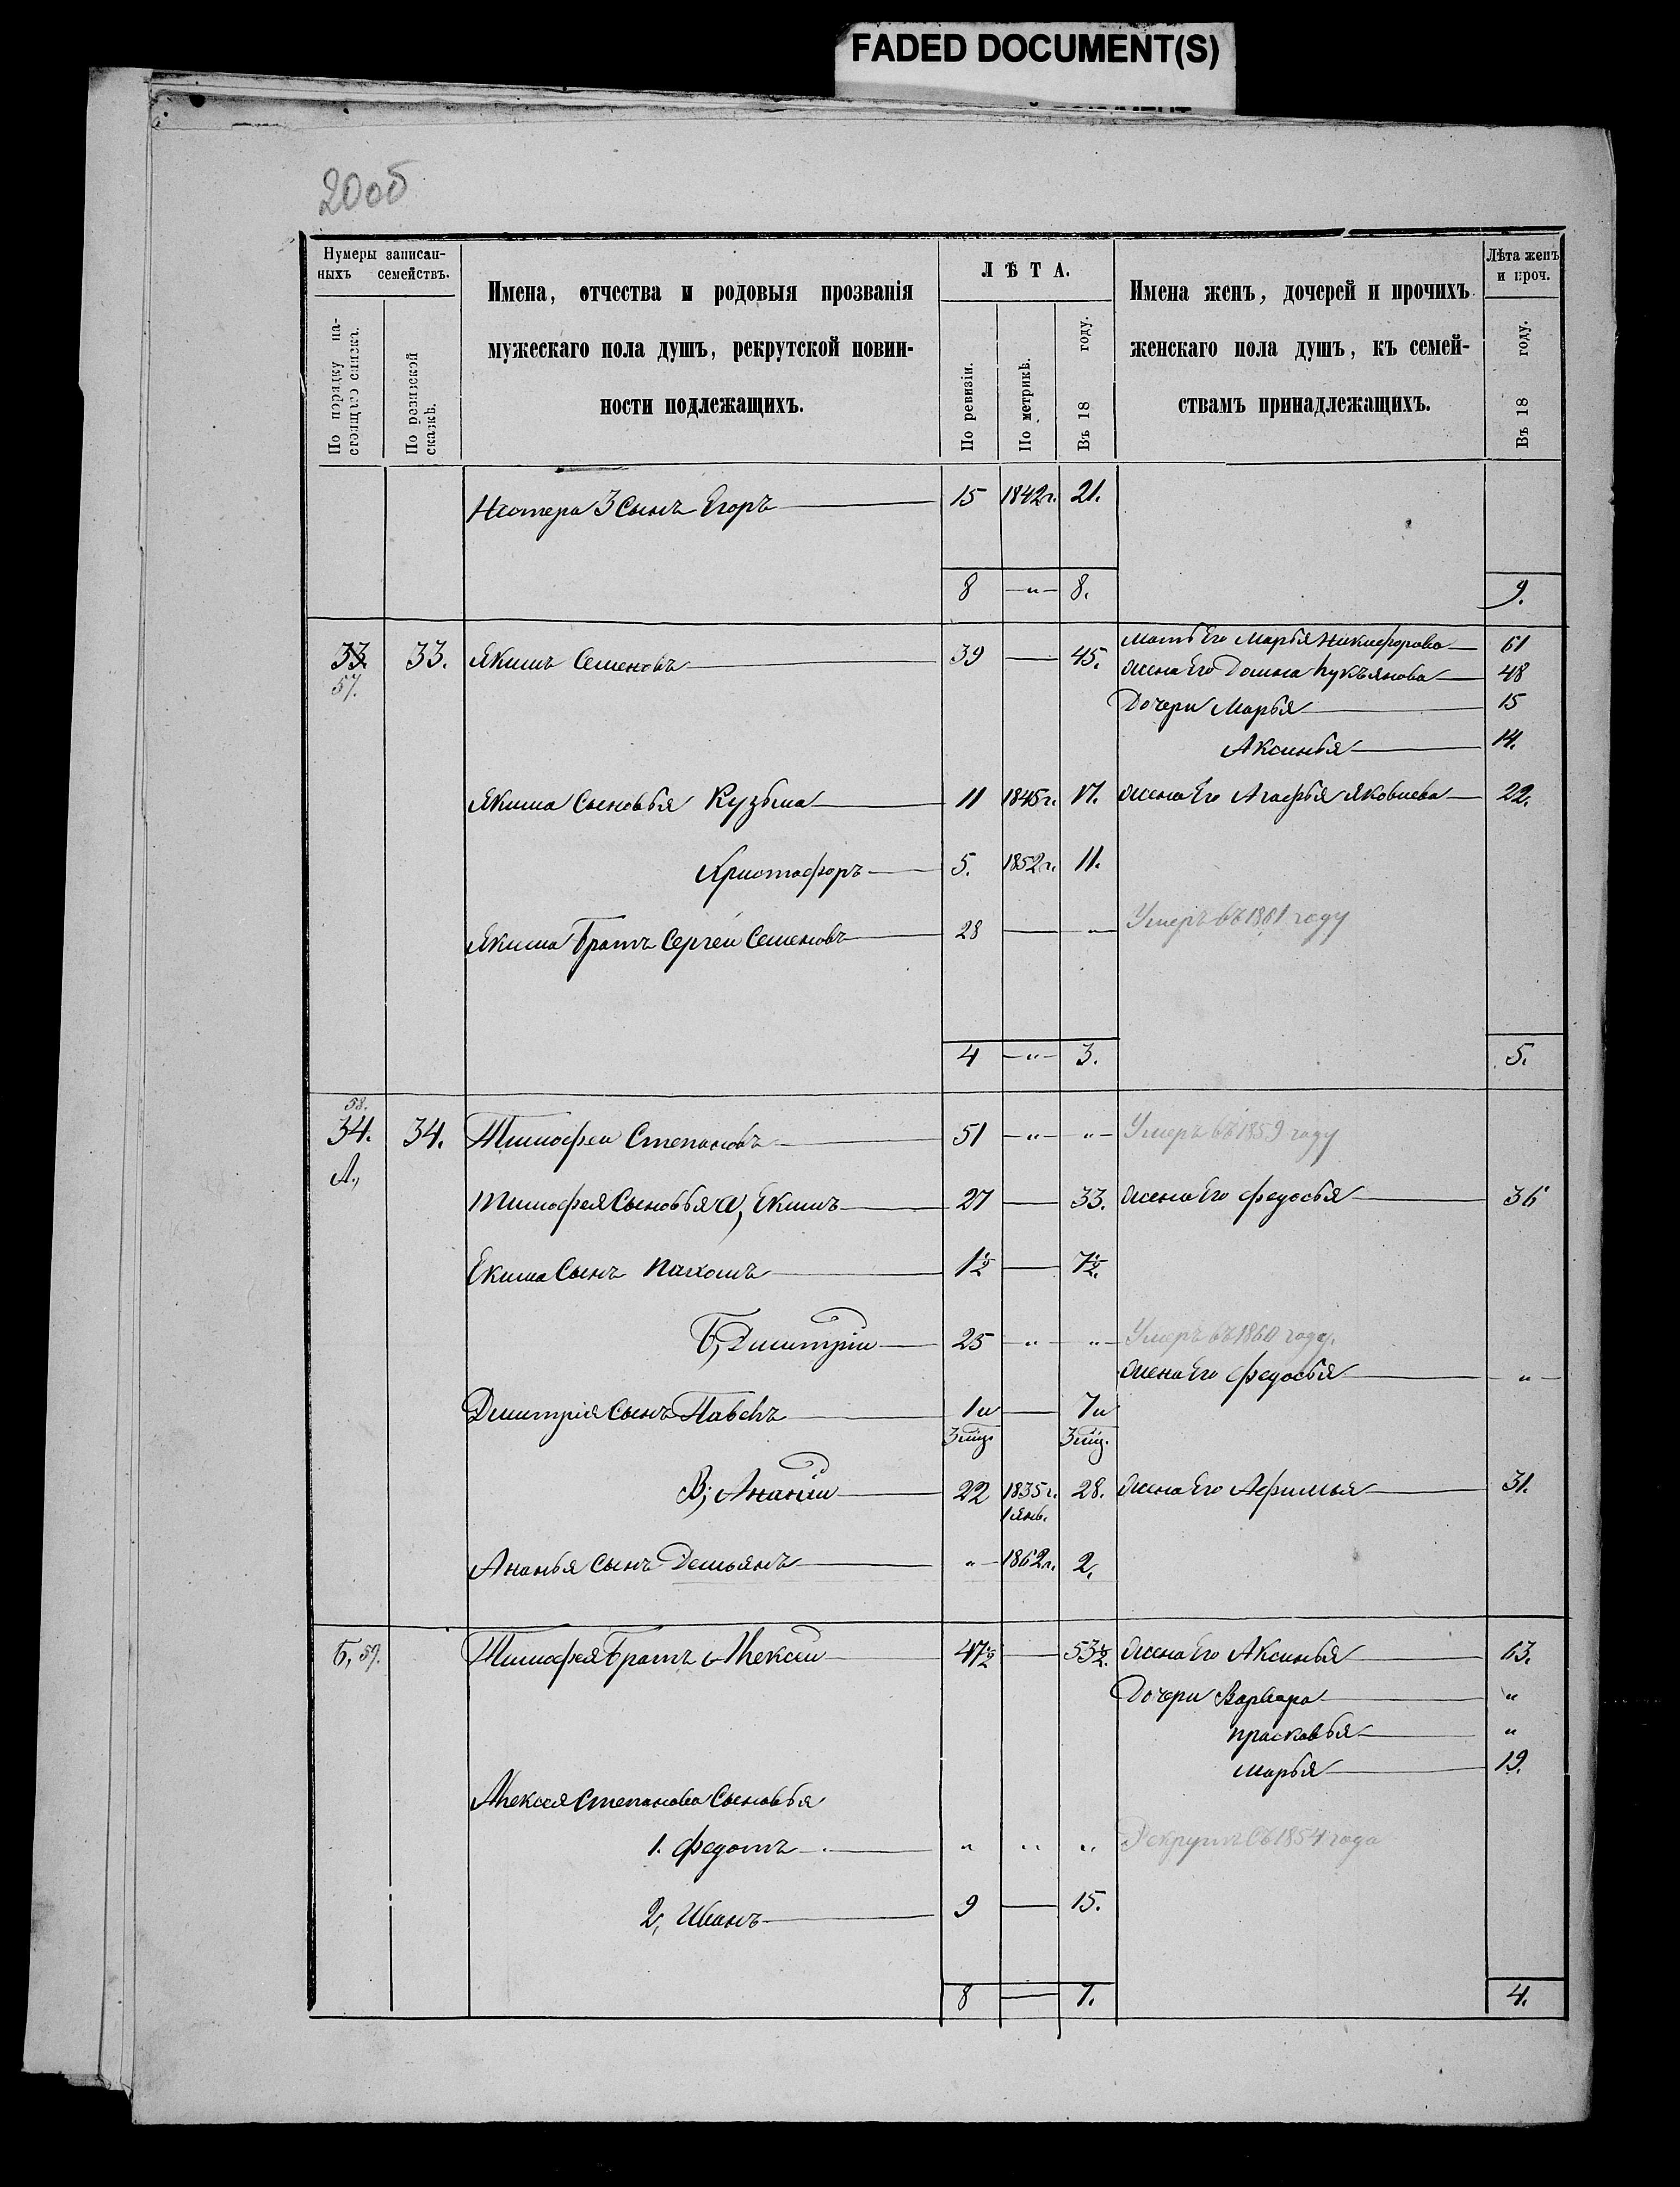 FADED DOCUMENT(S)
20об
Нумеры записан-
ныхъ семействъ.
По порядку на-
стоящаго списка.
По ревизской
сказкѣ.
Имена, отчества и родовыя прозванія
мужескаго пола душъ, рекрутской повин-
ности подлежащихъ.
ЛѢТА.
По ревизіи.
По метрикѣ.
Въ 18 году.
Имена женъ, дочерей и прочихъ
женскаго пола душъ, къ семей-
ствамъ принадлежащихъ.
Лѣта женъ
и проч.
Въ 18 году.
3 Сынъ Егоръ 15 1842 г. 21.
8 " 8. 9.
33. 33. Якимъ Семеновъ 39 45. Мать Его Марья Никифорова 61
57.
жена Его Домна Лукъянова 48
Дочери Марья 15
Аксинья 14.
Якима Сыновья Кузьма 11 1845 г. 17. жена Его Агафья Яковлева 22.
Христофоръ 5. 1852 г. 11.
Якима Братъ Сергей Семеновъ 28 " Умеръ въ 1861 году
4 " 3. 5.
58.
34. 34. Тимофей Степановъ 51 " " Умеръ въ 1859 году
А,
Тимофея Сыновья а, Екимъ 27 33. жена Его Федосья 36
Екима Сынъ Пахомъ 1½ 7½.
Б, Дмитрій 25 " " Умеръ въ 1860 году.
жена Его Федосья "
Дмитрія Сынъ Павелъ 1 и 7 и
3 мѣц. 3 мѣц.
В, Ананій 22 1835 г. 28. жена Его Афимья 31.
1 янв.
Ананья Сынъ Демьянъ " 1862 г. 2.
Б, 59. Тимофея Братъ Алексей 47½ 53½. жена Его Аксинья 63.
Дочери Варвара "
Прасковья "
Марья 19.
Алексея Степанова Сыновья
1. Федотъ " " " Рекрутъ Съ 1854 года
2, Иванъ 9 15.
8 7. 4.